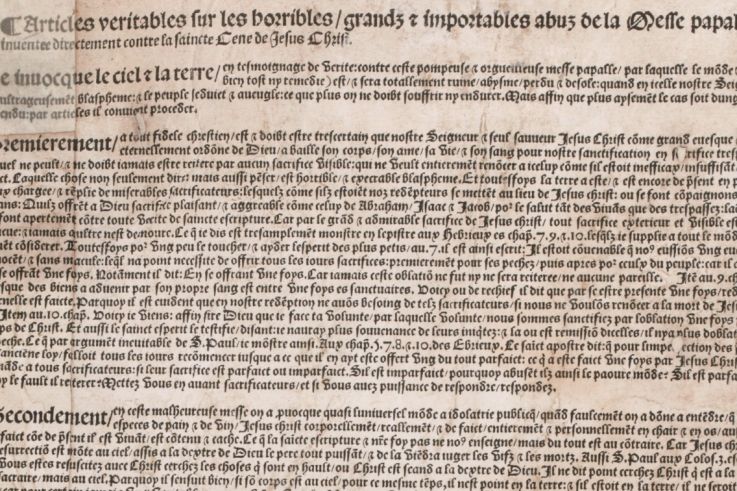 ¶Articles veritables sur les horribles/grandz ⁊ importables abuz de la Messe papal
inuentee directement contre la saincte Cene de Jesus Christ.
e inuocque le ciel ⁊ la terre/ en tesmoignage de Verite: contre ceste pompeuse ⁊ orgueilleuse messe papalle/ par laquelle le mõde
bien tost ny remedie) est/⁊ sera totallement ruine/abysme/perdu ⁊ desole: quand en icelle nostre Sei
ultrageusemẽt blaspheme: ⁊ le peuple seduict ⁊ aueugle: ce que plus on ne doibt souffrir ny endurer. Mais affin que plus aysemẽt le cas soit
endu: par articles il conuient proceder.
Premierement/ a tout fidele chrestien/est ⁊ doibt estre trescertain que nostre Seigneur ⁊ seul sauueur Jesus Christ cõme grand euesque
eternellement ordõne de Dieu/a baille son corps/son ame/sa Vie ⁊ son sang pour nostre sanctification en
uel ne peult/⁊ ne doibt iamais estre reitere par aucun sacrifice Visible: qui ne Veult entierement renõcer a icelup cõme sil estoit inefficax/insuffisãt
ct. Laquelle chose nõ seulement dire: mais aussi pẽser/est horrible/⁊ execrable blaspheme. Et toutesfoys la terre a este/⁊ est encore de pñsent en
chargee/⁊ rẽplie de miserables sacrificateurs: lesquelz cõme silz estoiẽt noz redẽpteurs se mettẽt au lieu de Jesus christ: ou se font cõpaignons
ans: Quilz offrẽt a Dieu sacrifice plaisãt/⁊ aggreable cõme celuy de Abrahã/Isaac ⁊ Jacob/poꝛ le salut tãt des Viuãs que des trespassez:
font apertemẽt cõtre toute Verite de saincte escripture. Car par le grãd ⁊ admirable sacrifice de Jesus christ/ tout sacrifice exterieur et Visible est
eue: ⁊ iamais aultre nest demoure. Ce q̃ ie dis est tresamplement monstre en lepistre aux Hebrieux es chap. 7.9.⁊.10. lesq̃lz ie supplie a tout le mõd
ẽt cõsiderer. Toutesfoys poꝛ Vng peu le toucher/⁊ ayder lesperit des plus petis/au.7. il est ainsi escrit: Il estoit cõuenable q̃ noꝰ eussiõs Vng
nocẽt/⁊ sans macule: leq̃l na point necessite de offrir tous les iours sacrifices: premieremẽt pour ses pechez/puis apres poꝛ ceulx du peuple: car il
se offrãt Vne foys. Notãment il dit: En se offrant Vne foys. Car iamais ceste oblatiõ ne fut ny ne sera reiteree/ne aucune pareille. Itẽ au.9.
esque des biens a aduenir par son propre sang est entre Vne foys es sanctuaires. Voicy ou de rechief il dit que par se estre presente Vne foys/
rnelle est faicte. Parquoy il est euidẽt que en nostre redẽption ne auõs besoing de telz sacrificateurs/si nous ne Voulõs renõcer a la mort de Jesus
Item au.10.chap. Voicy ie Viens: affin q̃ ie face ta Volunte/par laquelle Volunte/nous sommes sanctifiez par loblation Vne foys
ps de Christ. Et aussi le sainct esperit le testifie/disant: ie nauray plus souuenance de leurs iniq̃tez: ⁊ la ou est remissiõ dicelles/il nya plus
eche. Ce q̃ par argumẽt ineuitable de S. Paul/ie mõstre ainsi. Aux chap.5.7.8.⁊.10.des Ebrieux. Ce sainct apostre dit: q̃ pour des
anciene loy/falloit tous les iours recõmencer iusque a ce que il en ayt este offert Vng du tout parfaict: ce q̃ a este faict Vne foys par Jesus Chri
mãde a tous sacrificateurs: si leur sacrifice est parfaict ou imparfaict. Sil est imparfaict/pourquoy abusẽt ilz ainsi le paoure mõde: Sil est parfai
y le fault il reiterer: Mettez Vous en auant sacrificateurs/et si Vous auez puissance de respondre/respondez.
Secondement/ en ceste malheureuse messe on a puocque quasi luniuersel mõde a idolatrie publicq̃/quãd faulcemẽt on a dõne a entẽdre/q̃
especes de pain/⁊ de Vin/Jesus christ corporellemẽt/reallemẽt/⁊ de faict/entieremẽt ⁊ personnellemẽt en chair ⁊ en os/
faict cõe de pñsent il est Viuãt/est cõtenu ⁊ cache. Ce q̃ la saicte escripture ⁊ nr̃e foy pas ne noꝰ enseigne/mais du tout est au cõtraire. Car Jesus
resurrectiõ est mõte au ciel/assis a la dextre de Dieu le pere tout puissãt/⁊ de la Viẽdra iuger les Vifz ⁊ les mortz. Aussi S. Paul aux Coloss.3.
Vous estes resuscitez auec Christ cerchez les choses q̃ sont en hault/ou Christ est seant a la dextre de Dieu. Il ne dit point cerchez Christ
sacraire/mais au ciel. Parquoy il sensuit bien/si sõ corps est au ciel/pour ce mesme tẽps/il nest point en la terre/⁊ sil estoit en la terre/il ne seroit